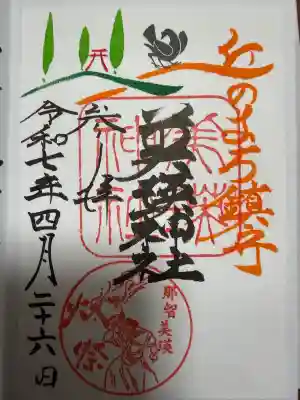 丘のまち鎮守
美瑛神社
美瑛
神社
令和七年四月二十六日
那智美瑛
火祭